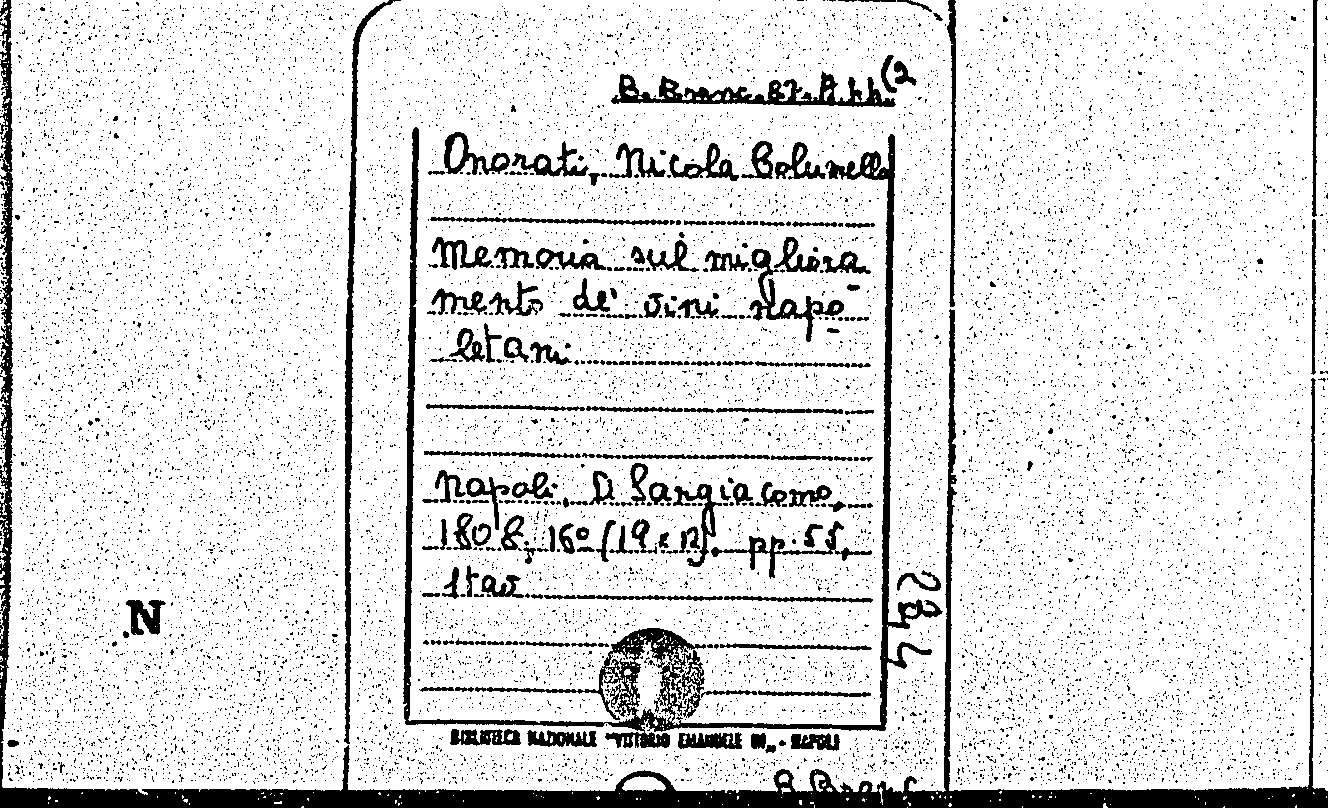 B. Branc. 87. A. hh. (2
Onorati, Nicola Columella
Memoria sul migliora-
mento de' vini napo-
letani
Napoli, D. Sangiacomo,
1808, 16º (19 x 12). pp. 55,
1 tav
N
BIBLIOTECA NAZIONALE "VITTORIO EMANUELE III" - NAPOLI
B. Branc